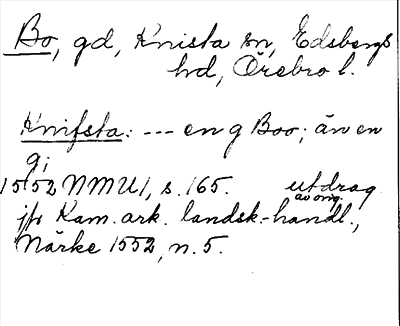 Bo, gd, Knista sn, Edsbergs
hd, Örebro l.
Knifsta: --- en g Boo; även
g;
1552 NMU 1, s. 165. utdrag
av orig.
jfr Kam. ark. landsk.-handl.,
Närke 1552, n. 5.